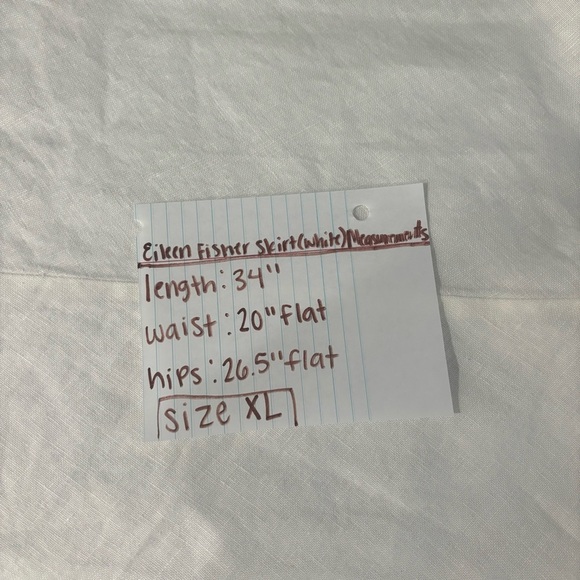 Eileen Fisher skirt(white)Measurements
length: 34"
waist: 20" flat
hips: 26.5" flat
size XL